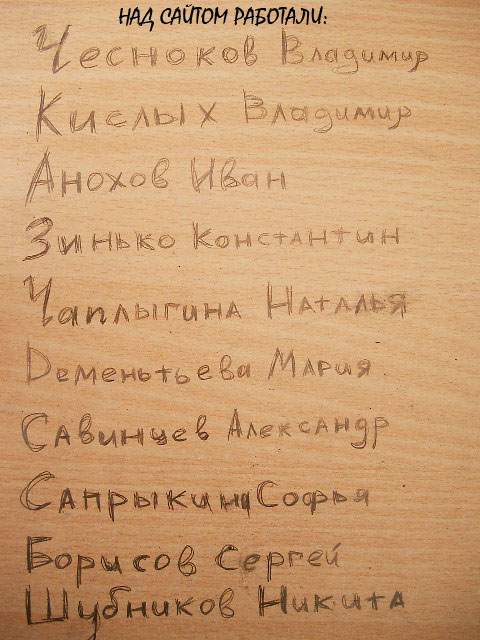 НАД САЙТОМ РАБОТАЛИ:
Чесноков Владимир
Кислых Владимир
Анохов Иван
Зинько Константин
Чаплыгина Наталья
Дементьева Мария
Савинцев Александр
Сапрыкина Софья
Борисов Сергей
Шубников Никита